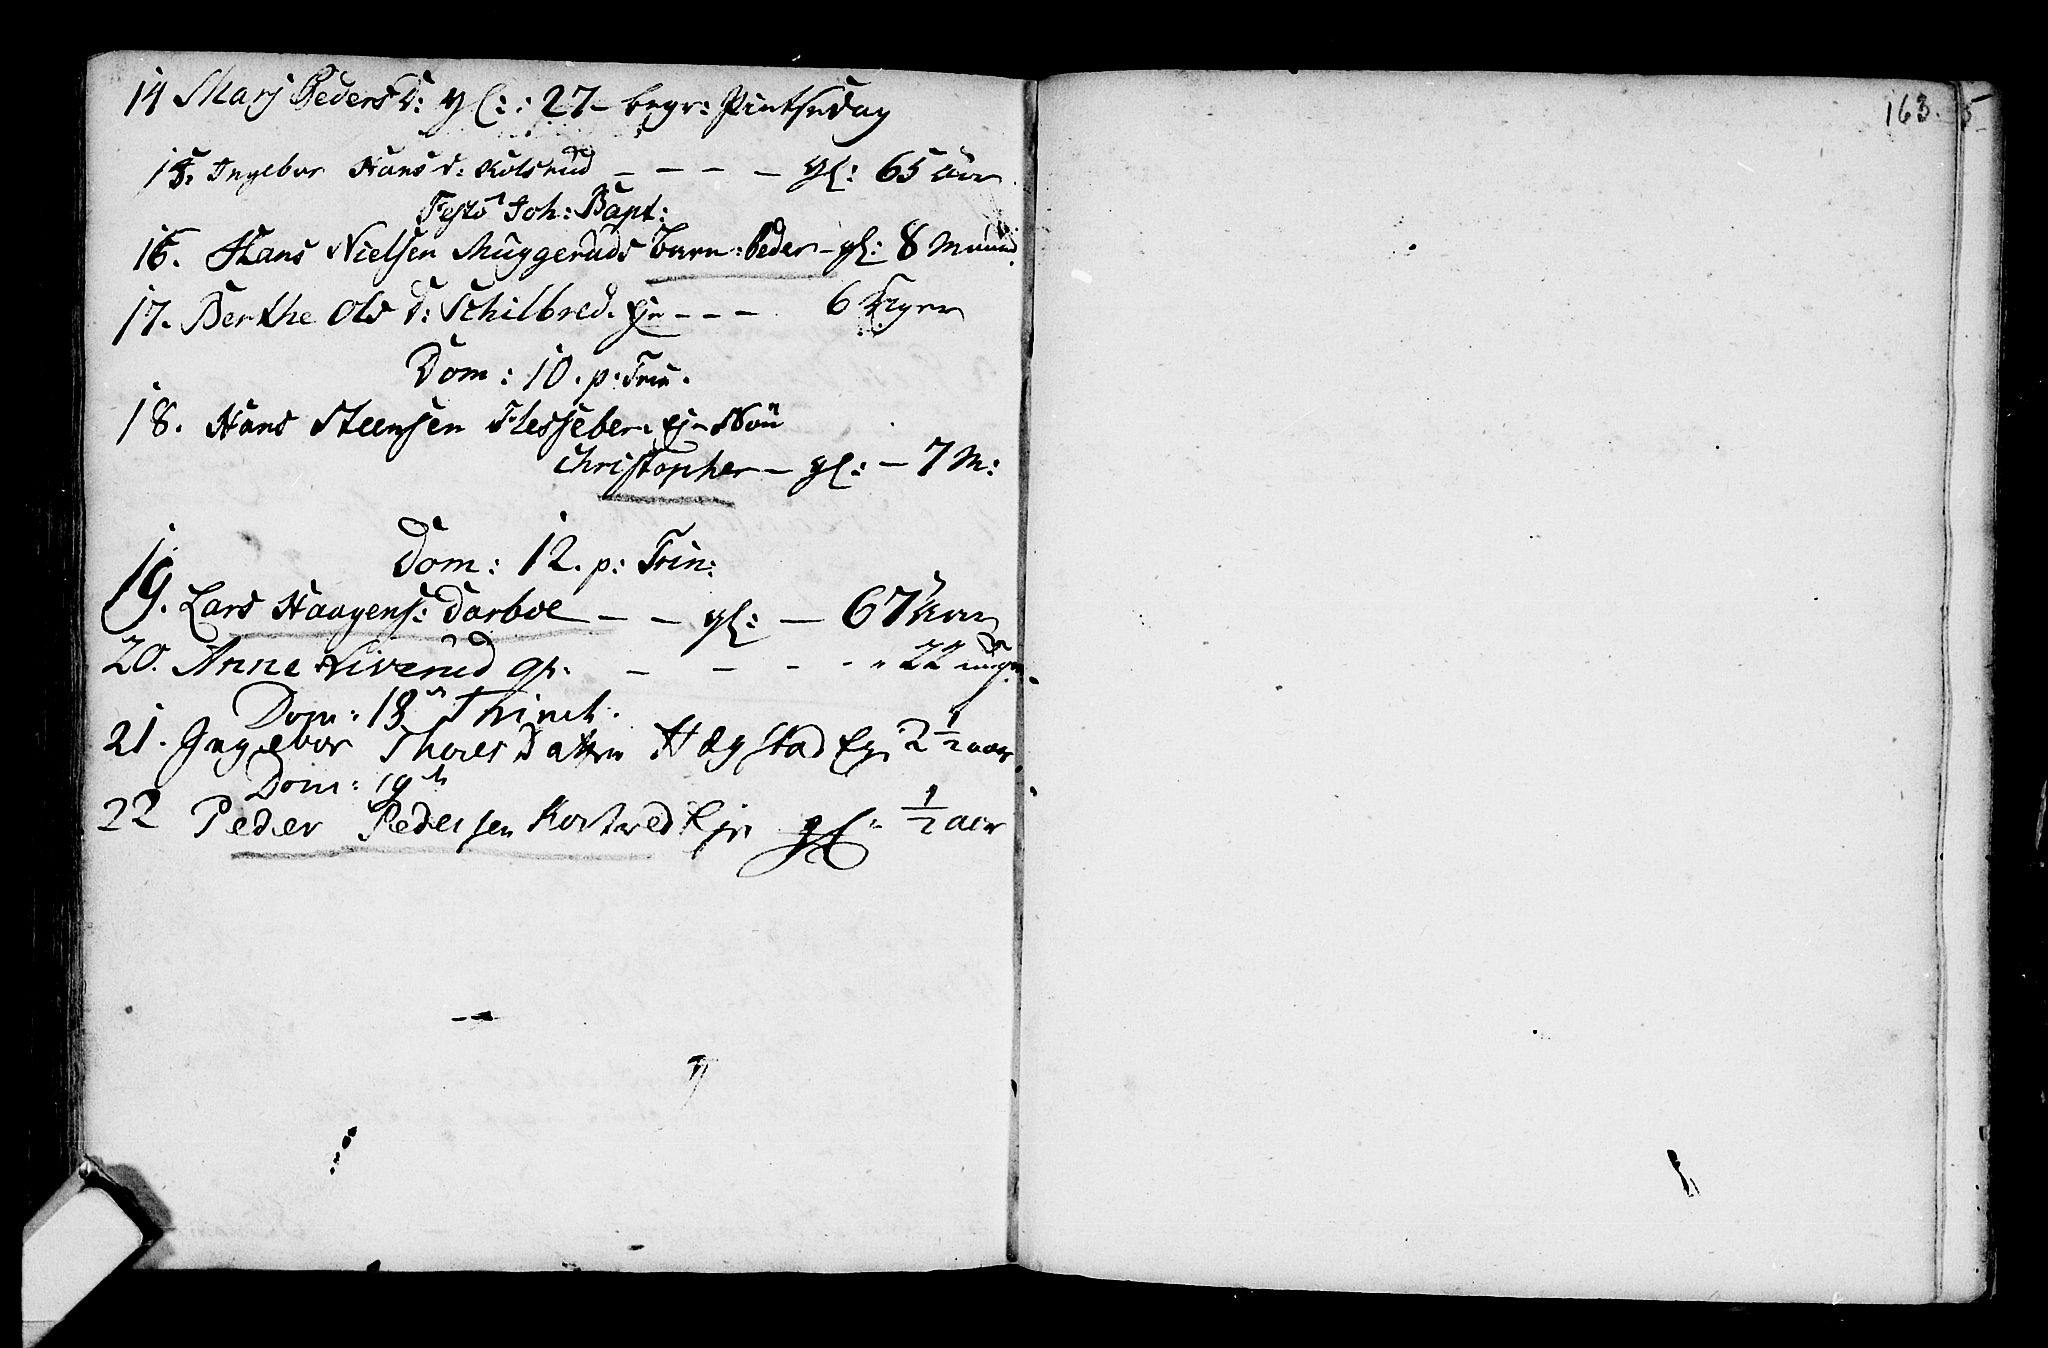 14 Marj Peders d: gl:: 27– begr: Pintsedag
15. Ingebor Hans d: Kolsrud – – – – gl: 65 Aar
Festo Joh: Bapt:
16. Hans Nielsen Muggeruds barn: Peder – gl: 8 Maaned
17. Berthe Ols d: Schilbred. Eje – – – 6 Uger
Dom: 10. p: Trin.
18. Hans Steensen Flesseber. Eje Søn
Christopher – gl: – 7 M:
Dom: 12. p: Trin:
19. Lars Haagens: Darboe – – gl: – 67 Aar
20. Anne Liverud – – – – 22 uger
Dom: 18 Trinit.
21. Ingebor Thoresdatter Hægstad Eje 2 1/2 aar
Dom: 19
22 Peder Pedersen Kortved Eje gl: 1/2 aar
163.
5